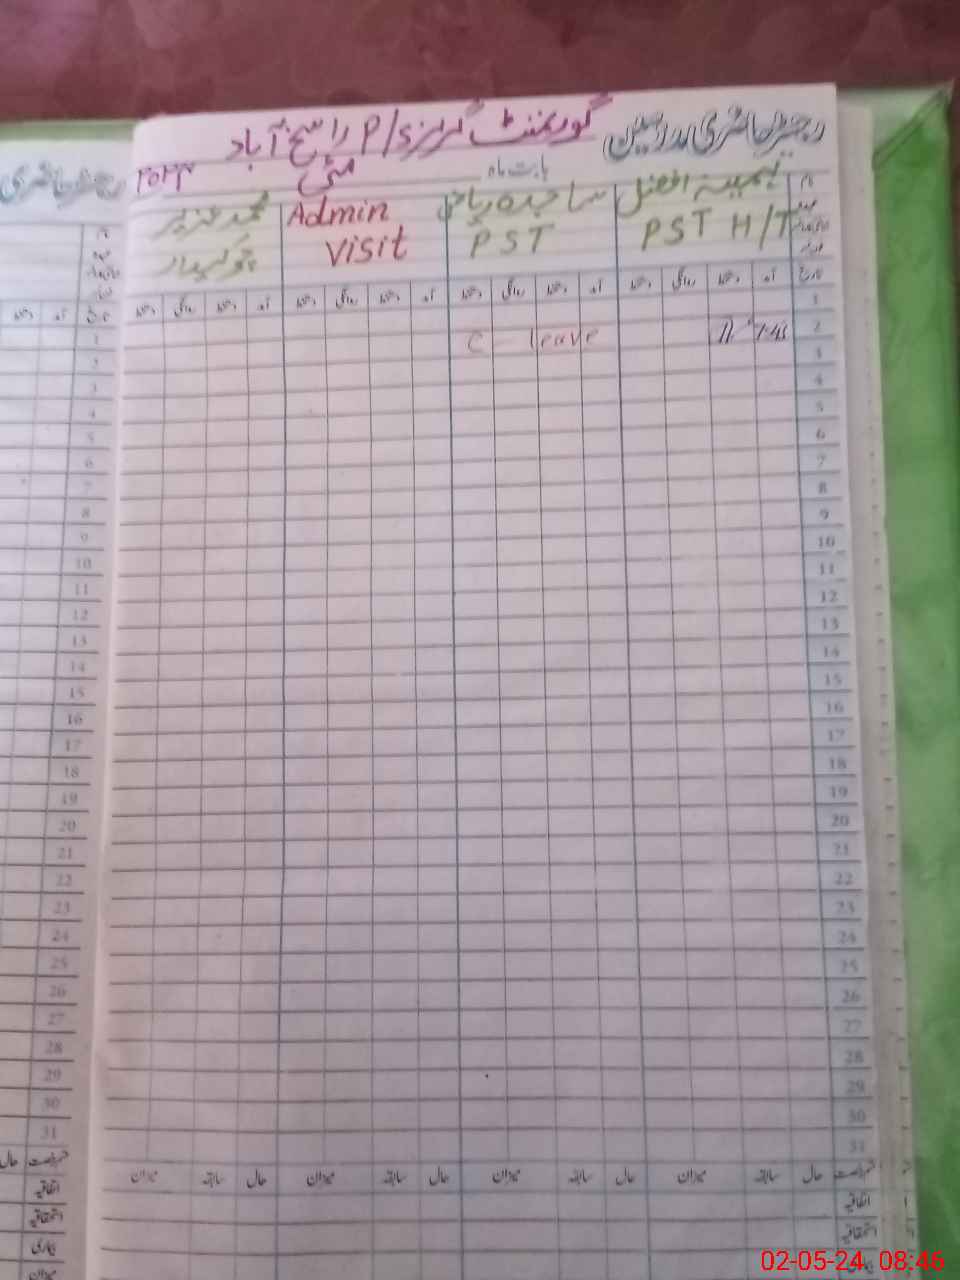 رجسٹر حاضری مدرسین گورنمنٹ گرلز P/S راسخ آباد
بابت ماہ مئی ۲۰۲۴
نام
عہدہ
ساجدہ ریاض
PST
PST H/T
Admin
Visit
محمد عزیر
چوکیدار
تاریخ
آمد دستخط روانگی دستخط آمد دستخط روانگی دستخط آمد دستخط روانگی دستخط آمد دستخط روانگی دستخط
1
2 7:45 C leave
3
4
5
6
7
8
9
10
11
12
13
14
15
16
17
18
19
20
21
22
23
24
25
26
27
28
29
30
31
حال سابقہ میزان حال سابقہ میزان حال سابقہ میزان حال سابقہ میزان
اتفاقیہ
استحقاقیہ
بیماری
رجسٹر حاضری
نام
عہدہ
تاریخ
آمد دستخط
1
2
3
4
5
6
7
8
9
10
11
12
13
14
15
16
17
18
19
20
21
22
23
24
25
26
27
28
29
30
31
حال
اتفاقیہ
استحقاقیہ
بیماری
میزان
02-05-24 08:46